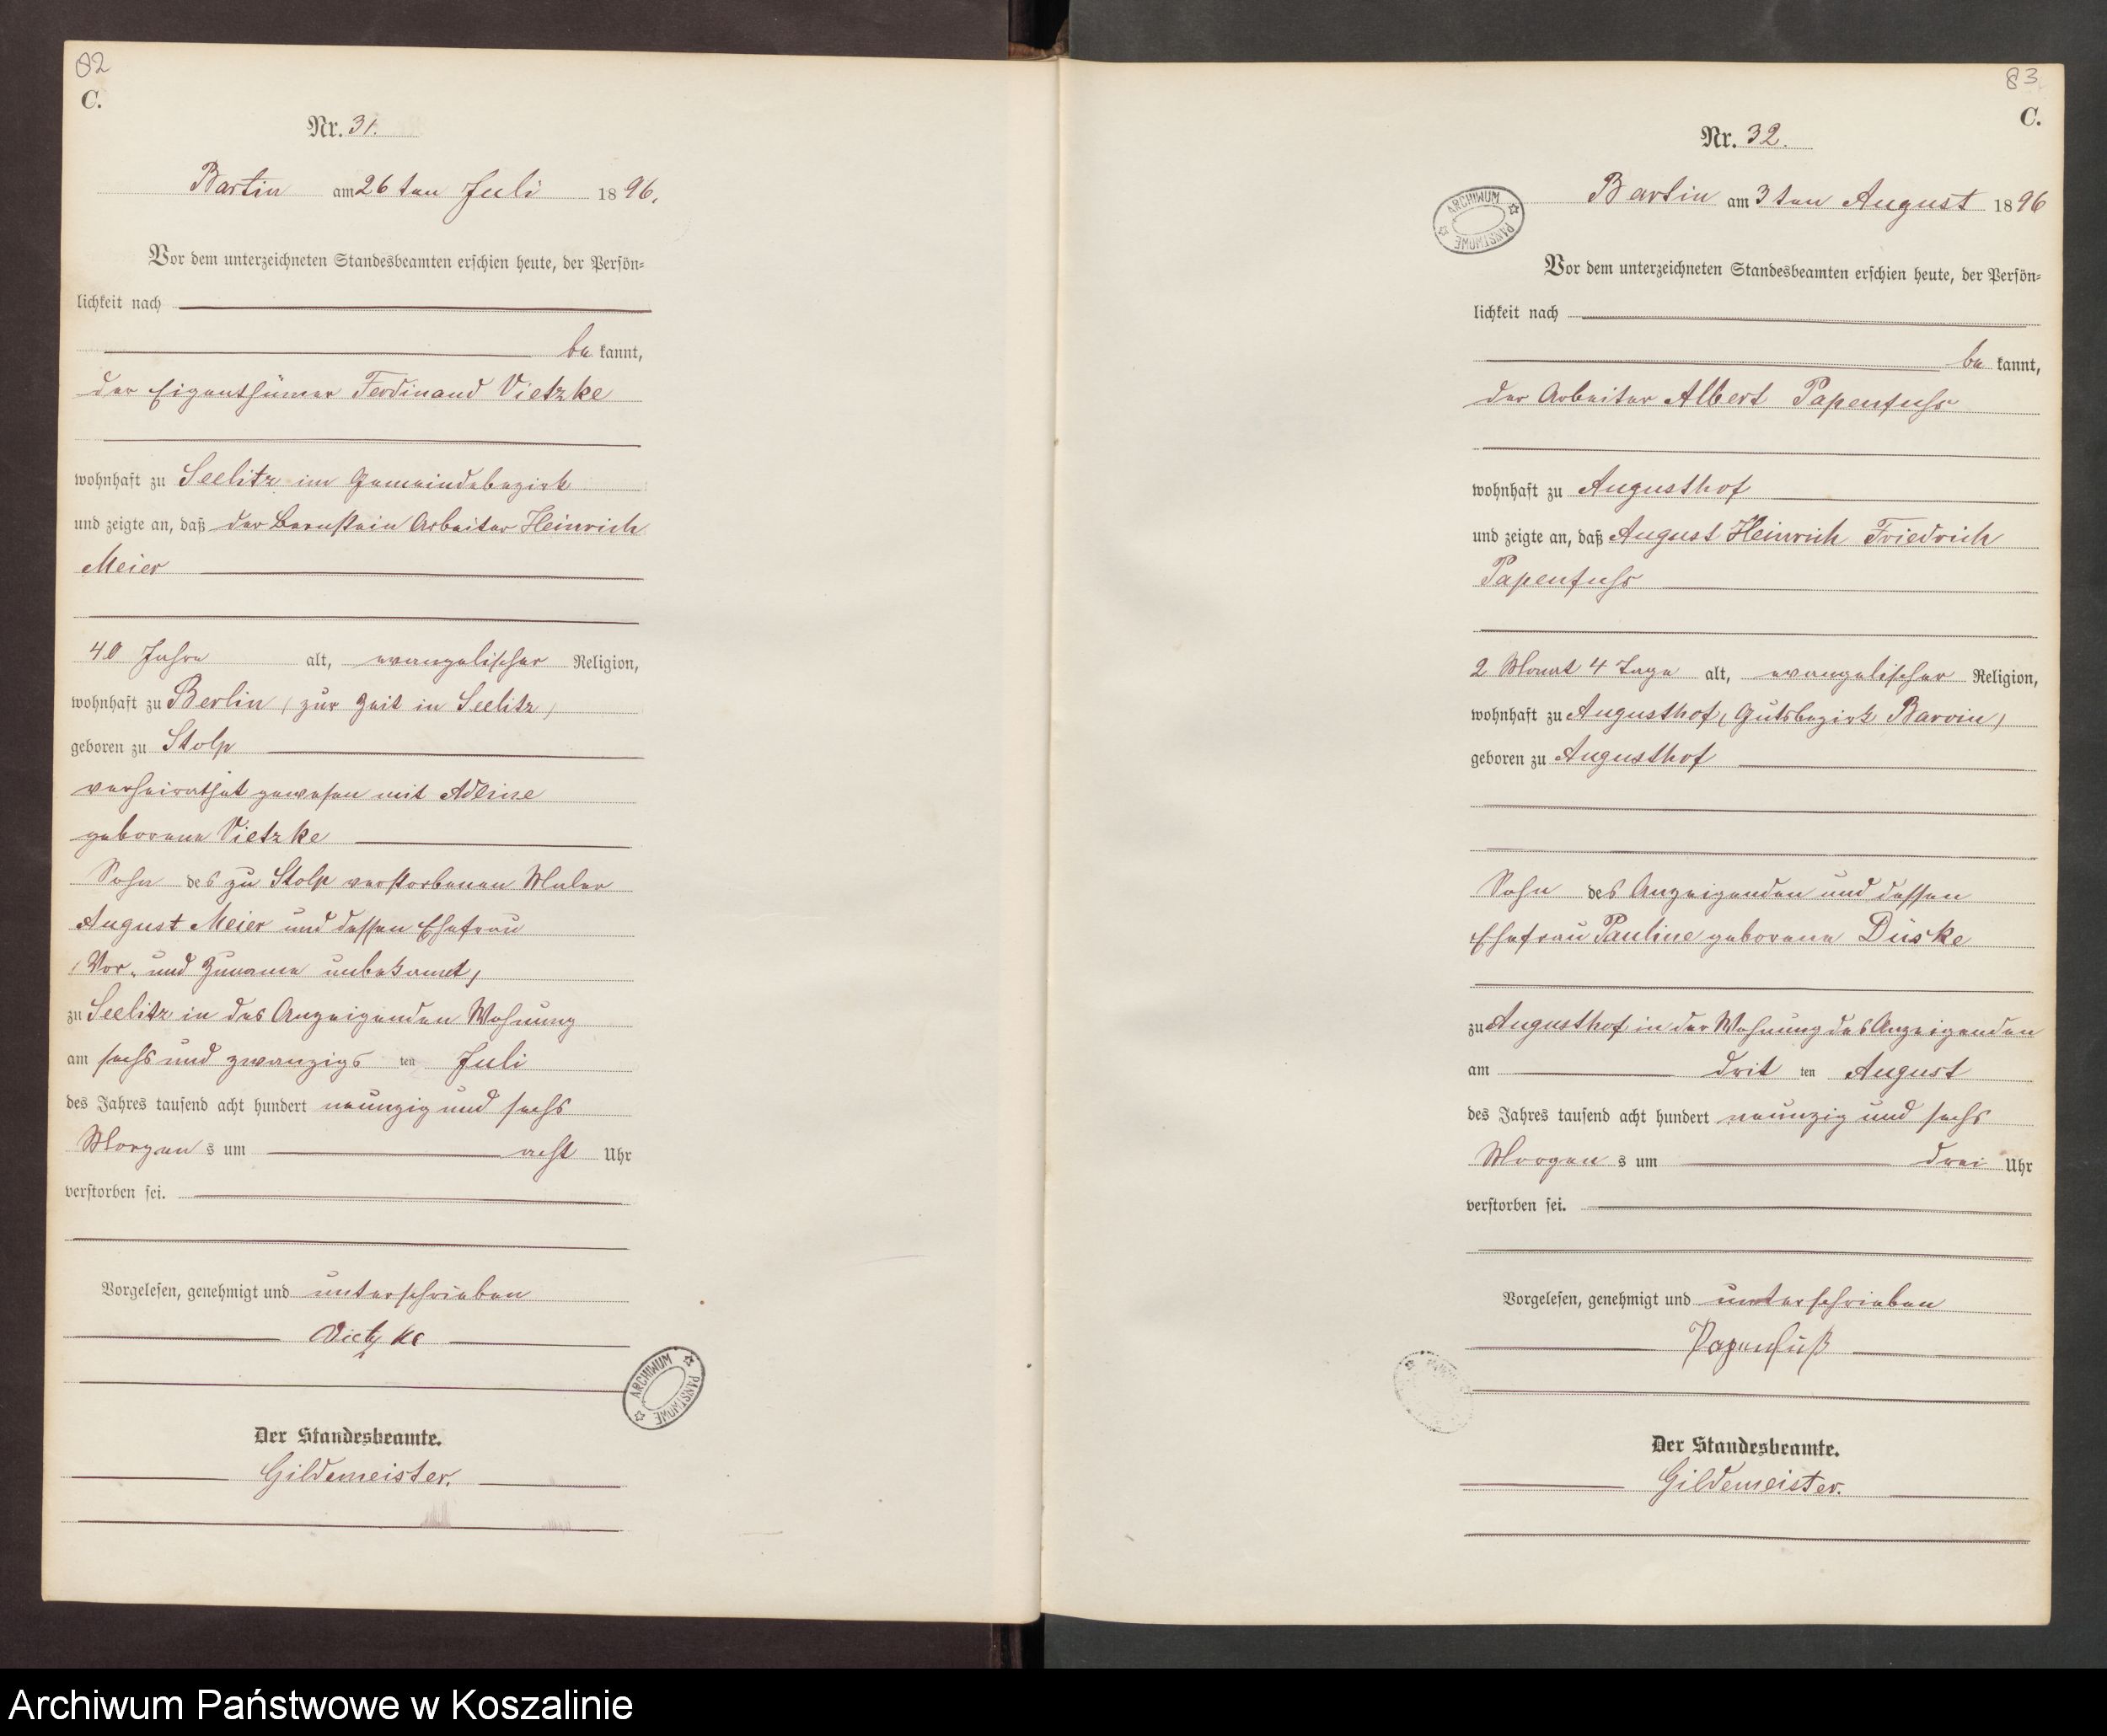 82
C.
Nr. 31.
Bartin am 26ten Juli 1896.
Vor dem unterzeichneten Standesbeamten erschien heute, der Persön-
lichkeit nach
be kannt,
der Eigenthümer Ferdinand Vietzke
wohnhaft zu Seelitz im Gemeindebezirk
und zeigte an, daß der Bernstein Arbeiter Heinrich
Meier
40 Jahre alt, evangelischer Religion,
wohnhaft zu Berlin (zur Zeit in Seelitz)
geboren zu Stolp
verheirathet gewesen mit
geborene Vietzke
Sohn des zu Stolp verstorbenen Maler
August Meier und dessen Ehefrau
(Vor- und Zuname unbekannt)
zu Seelitz in des Anzeigenden Wohnung
am sechs und zwanzigs ten Juli
des Jahres tausend acht hundert neunzig und sechs
Morgen s um acht Uhr
verstorben sei.
Vorgelesen, genehmigt und unterschrieben
Vietzke
ARCHIWUM PAŃSTWOWE
Der Standesbeamte.
Gildemeister.
83
C.
Nr. 32.
Bartin am 3ten August 1896
ARCHIWUM PAŃSTWOWE
Vor dem unterzeichneten Standesbeamten erschien heute, der Persön-
lichkeit nach
be kannt,
der Arbeiter Albert Papenfuhs
wohnhaft zu Augusthof
und zeigte an, daß August Heinrich Friedrich
Papenfuhs
2 Monat 4 Tage alt, evangelischer Religion,
wohnhaft zu Augusthof, (Gutsbezirk Barvin)
geboren zu Augusthof
Sohn des Anzeigenden und dessen
Ehefrau Pauline geborene Düske
zu Augusthof in der Wohnung des Anzeigenden
am drit ten August
des Jahres tausend acht hundert neunzig und sechs
Morgen s um drei Uhr
verstorben sei.
Vorgelesen, genehmigt und unterschrieben
Papenfuß
Der Standesbeamte.
Gildemeister.
Archiwum Państwowe w Koszalinie